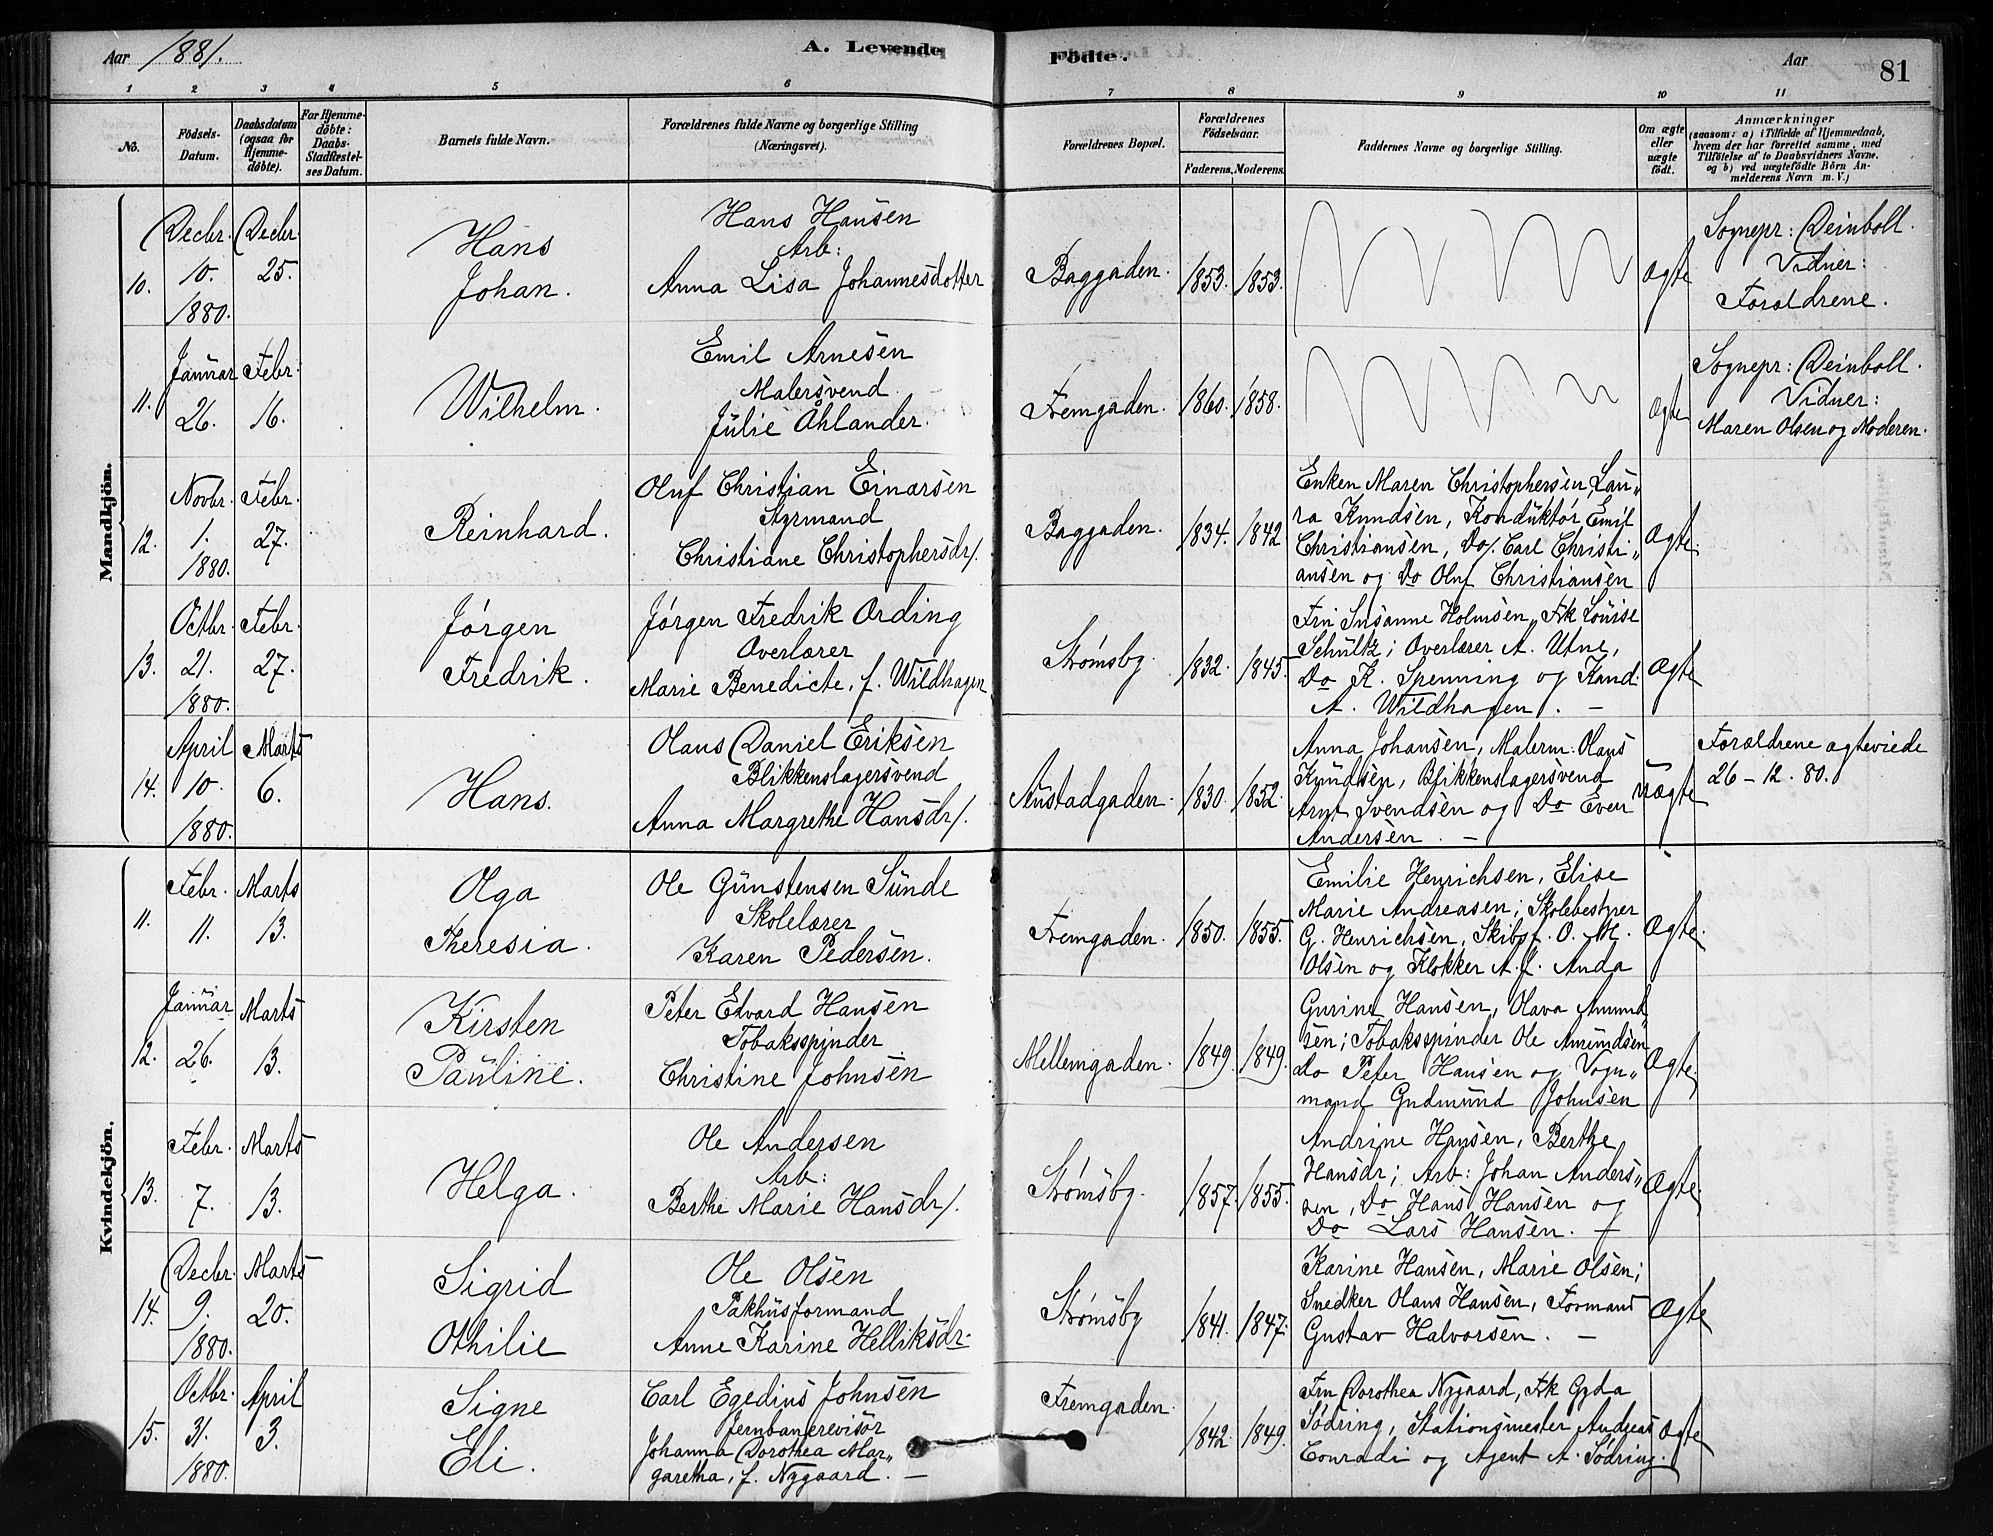 Aar 1881. A. Levende Födte. Aar 81
1 2 3 4 5 6 7 8 9 10 11
No. Födsels-Datum. Daabsdatum (ogsaa for Hjemme-döbte). For Hjemme-döbte: Daabs-Stadfæstel-ses Datum. Barnets fulde Navn. Forældrenes fulde Navne og borgerlige Stilling (Næringsvei). Forældrenes Bopæl. Forældrenes Födselsaar. Faderens. Moderens. Faddernes Navne og borgerlige Stilling. Om ægte eller uægte födt. Anmærkninger (saasom: a) i Tilfælde af Hjemmedaab, hvem der har forrettet samme, med Tilföielse af to Daabsvidners Navne, og b) ved uægtefödte Börn An-melderens Navn m. V.)
Mandkjön.
10. Decbr. 10. 1880. Decbr. 25.
Hans
Johan.
Hans Hansen
Arb:
Anna Lisa Johannesdotter
Baggaden. 1853. 1853. Ægte
Sognepr: Deinboll.
Vidner:
Forældrene.
11. Januar 26. Febr: 16.
Wilhelm.
Emil Arnesen
Malersvend
Julie Åhlander.
Fremgaden. 1860. 1858. Ægte
Sognepr: Deinboll.
Vidner:
Maren Olsen og Moderen.
12. Novbr. 1. 1880. Febr. 27.
Reinhard.
Oluf Christian Einarsen
Styrmand
Christiane Christophersdr/.
Baggaden. 1834. 1842
Enken Maren Christophersen, Lau„
ra Knudsen, Konduktör Emil
Christiansen, Do/. Carl Christi„
ansen og Do Oluf Christiansen
Ægte.
13. Octbr. 21. 1880. Febr. 27.
Jörgen
Fredrik.
Jörgen Fredrik Ording
Overlærer
Marie Benedicte, f. Wildhagen
Strømsby. 1832. 1845.
Fru Susanne Holmsen, Frk Louise
Schultz; Overlærer A. Utne,
Do K. Spenning og Kand.
A. Wildhagen. –
Ægte
14. April 10. 1880. Marts 6.
Hans.
Olaus Daniel Eriksen
Blikkenslagersvend
Anna Margrethe Hansdr/.
Austadgaden. 1830. 1852.
Anna Johansen, Malerm: Olaus
Knudsen, Blikkenslagersvend
Arnt Svendsen og Do Even
Andersen. –
Uægte
Forældrene ægteviede
26 – 12. 80.
Kvindekjön.
11. Febr. 11. Marts 13.
Olga
Theresia.
Ole Gunstensen Sunde
Skolelærer
Karen Pedersen.
Fremgaden. 1850. 1855.
Emilie Henrichsen, Elise
Marie Andreasen; Skolebestyrer
G. Henrichsen, Skibsf. O. M.
Olsen og Klokker A. L. Anda
Ægte.
12. Januar 26. Marts 13.
Kirsten
Pauline.
Peter Edvard Hansen
Tobaksspinder
Christine Johnsen
Mellemgaden. 1849. 1849.
Gurine Hansen, Olava Amund„
sen; Tobaksspinder Ole Amundsen
do Peter Hansen og Vogn„
mand Gudmund Johnsen
Ægte.
13. Febr. 7. Marts 13.
Helga.
Ole Andersen
Arb:
Berthe Marie Hansdr/.
Strømsby. 1857. 1855.
Andrine Hansen, Berthe
Hansdr; Arb: Johan Anders„
sen, Do Hans Hansen og
Do Lars Hansen. –
Ægte.
14. Decbr. 9. 1880. Marts 20.
Sigrid
Othilie
Ole Olsen
Pakhusformand
Anne Karine Helliksdr.
Strømsby 1841. 1847.
Karine Hansen, Marie Olsen;
Snedker Olaus Hansen, Formand
Gustav Halvorsen. –
Ægte
15. Octbr. 31. 1880. April 3.
Signe
Eli.
Carl Egedius Johnsen
Jernbanerevisor
Johanna Dorothea Mar„
garetha, f. Nygaard. –
Fremgaden. 1842. 1849.
Fru Dorothea Nygaard, Frk Gyda
Södring, Stationsmester Andreas
Conradi og Agent A. Södring.
Ægte